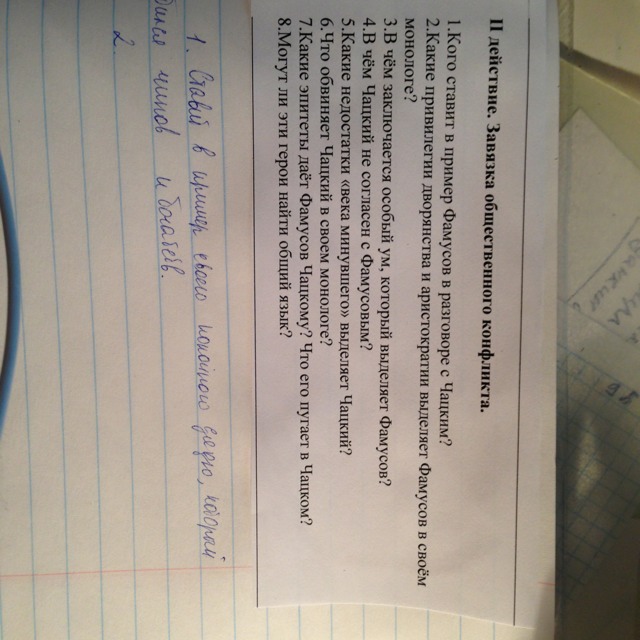 II действие. Завязка общественного конфликта.
1.Кого ставит в пример Фамусов в разговоре с Чацким?
2.Какие привилегии дворянства и аристократии выделяет Фамусов в своём
монологе?
3.В чём заключается особый ум, который выделяет Фамусов?
4.В чём Чацкий не согласен с Фамусовым?
5.Какие недостатки «века минувшего» выделяет Чацкий?
6.Что обвиняет Чацкий в своем монологе?
7.Какие эпитеты даёт Фамусов Чацкому? Что его пугает в Чацком?
8.Могут ли эти герои найти общий язык?
1. Ставит в пример своего покойного дядю, который
чинов и богатств.
2.